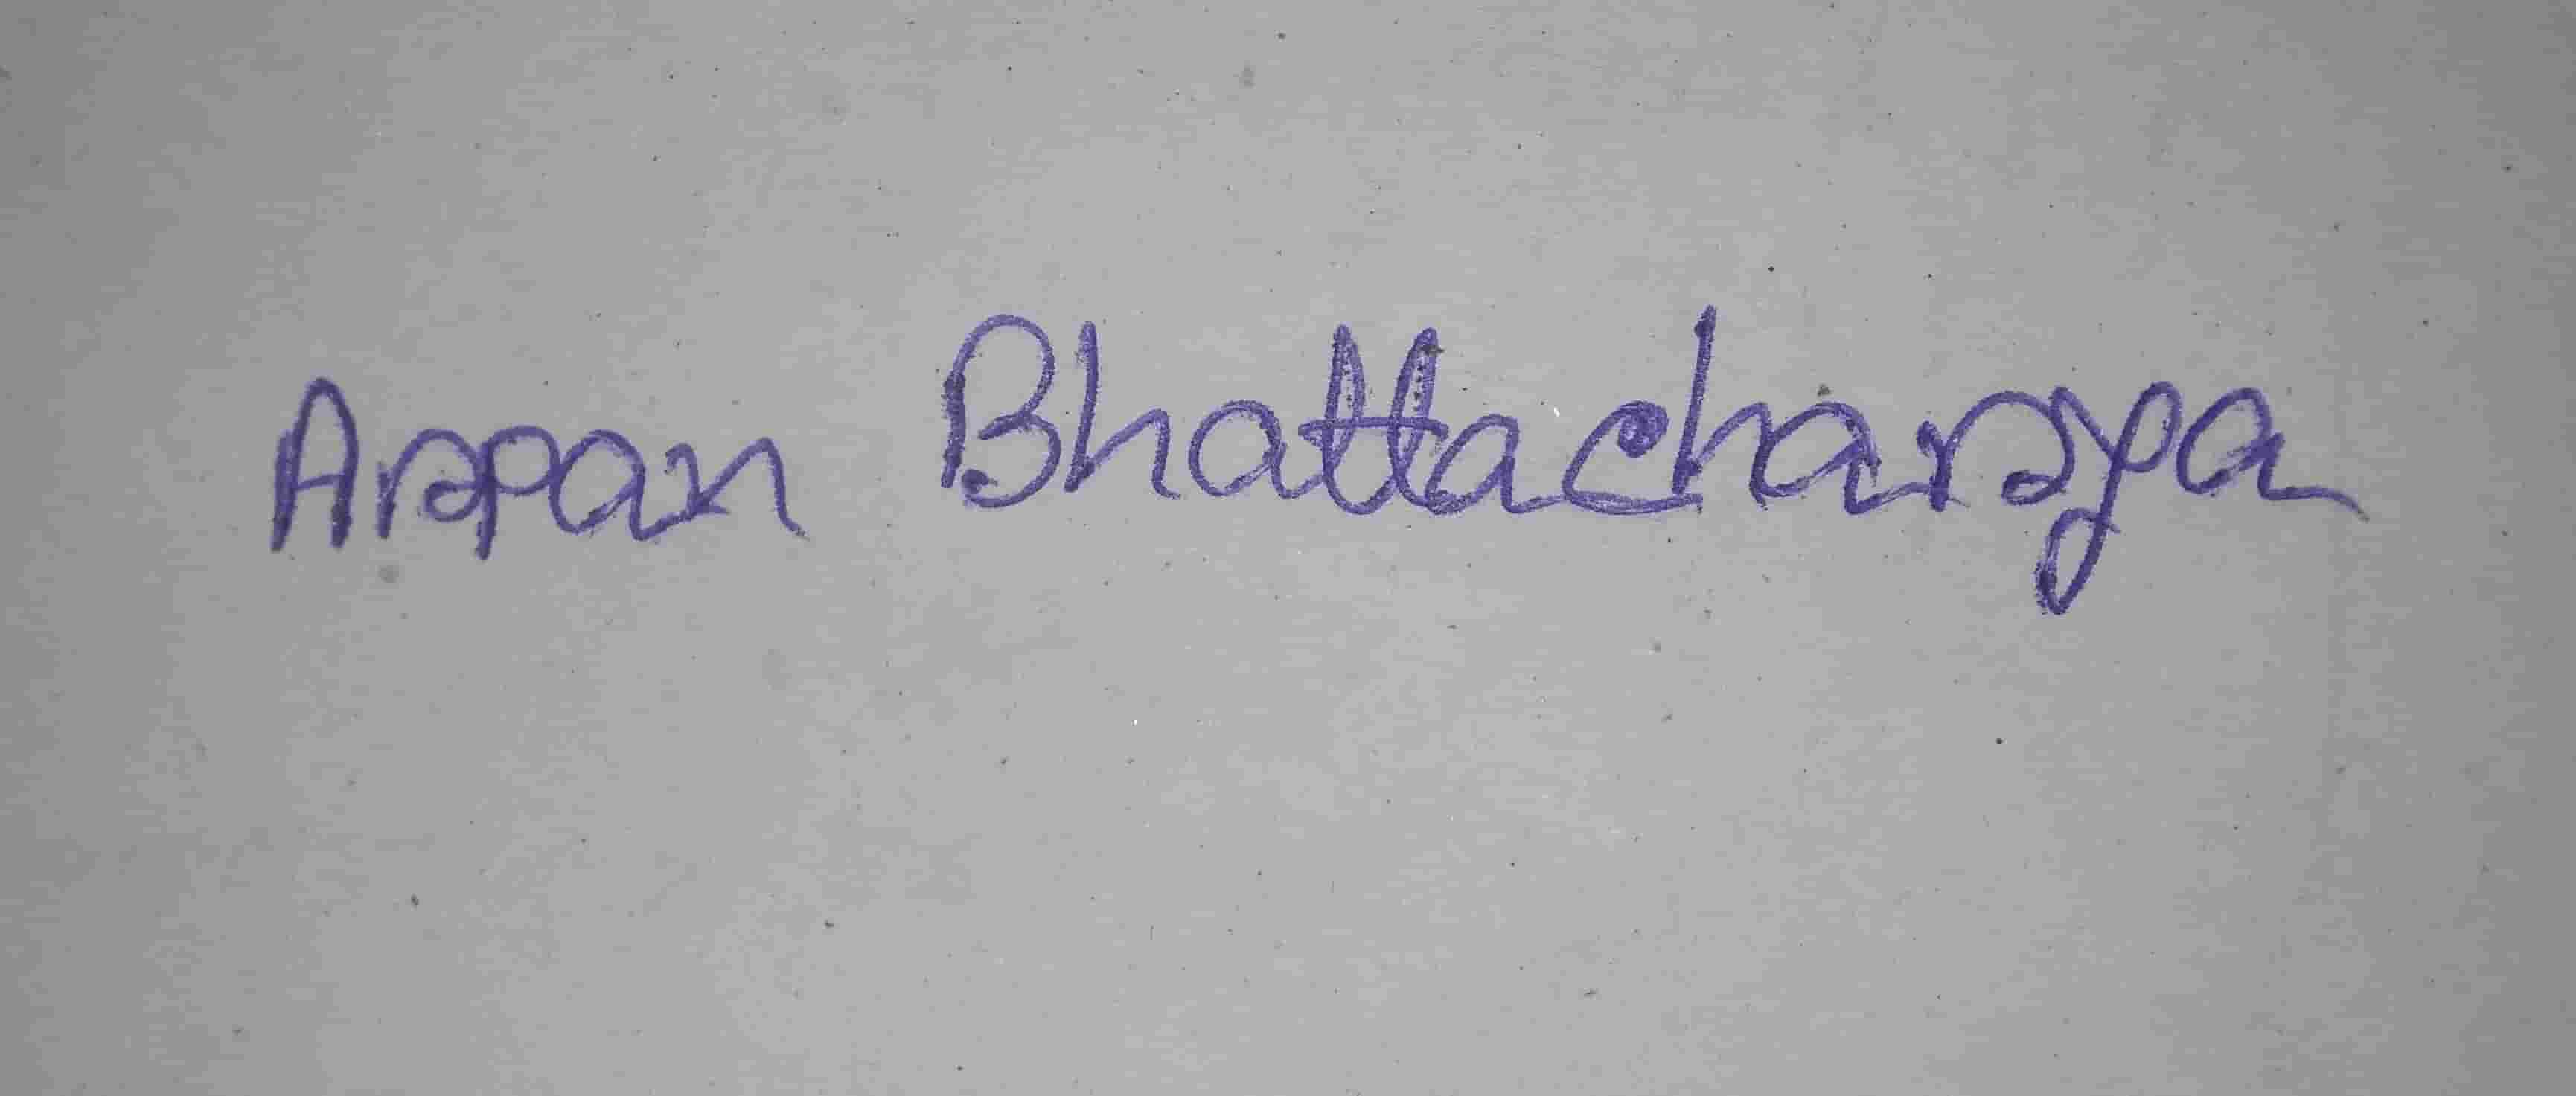 Arpan Bhattacharya